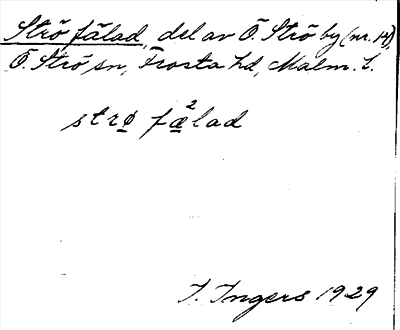 Strö fälad, del av Ö. Strö by (nr. 14),
Ö. Strö sn, Frosta hd, Malm. l.
strø fæ²lad
I. Ingers 1929